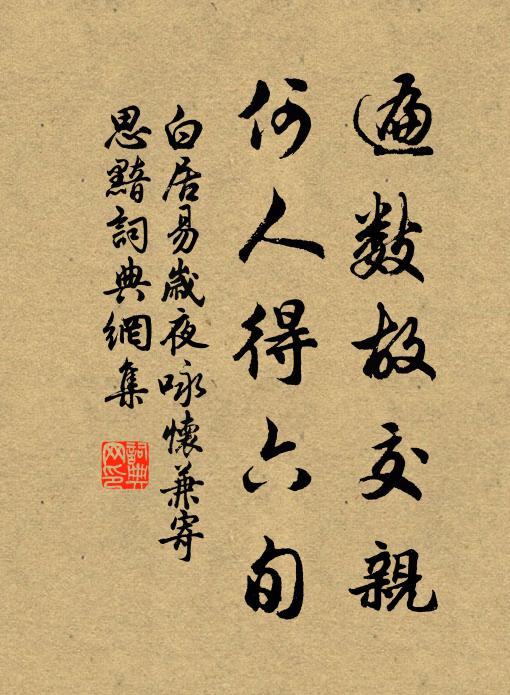 遍數故交親
何人得六旬
白居易歲夜咏懷兼寄
思黯詞典網集
詞典網印